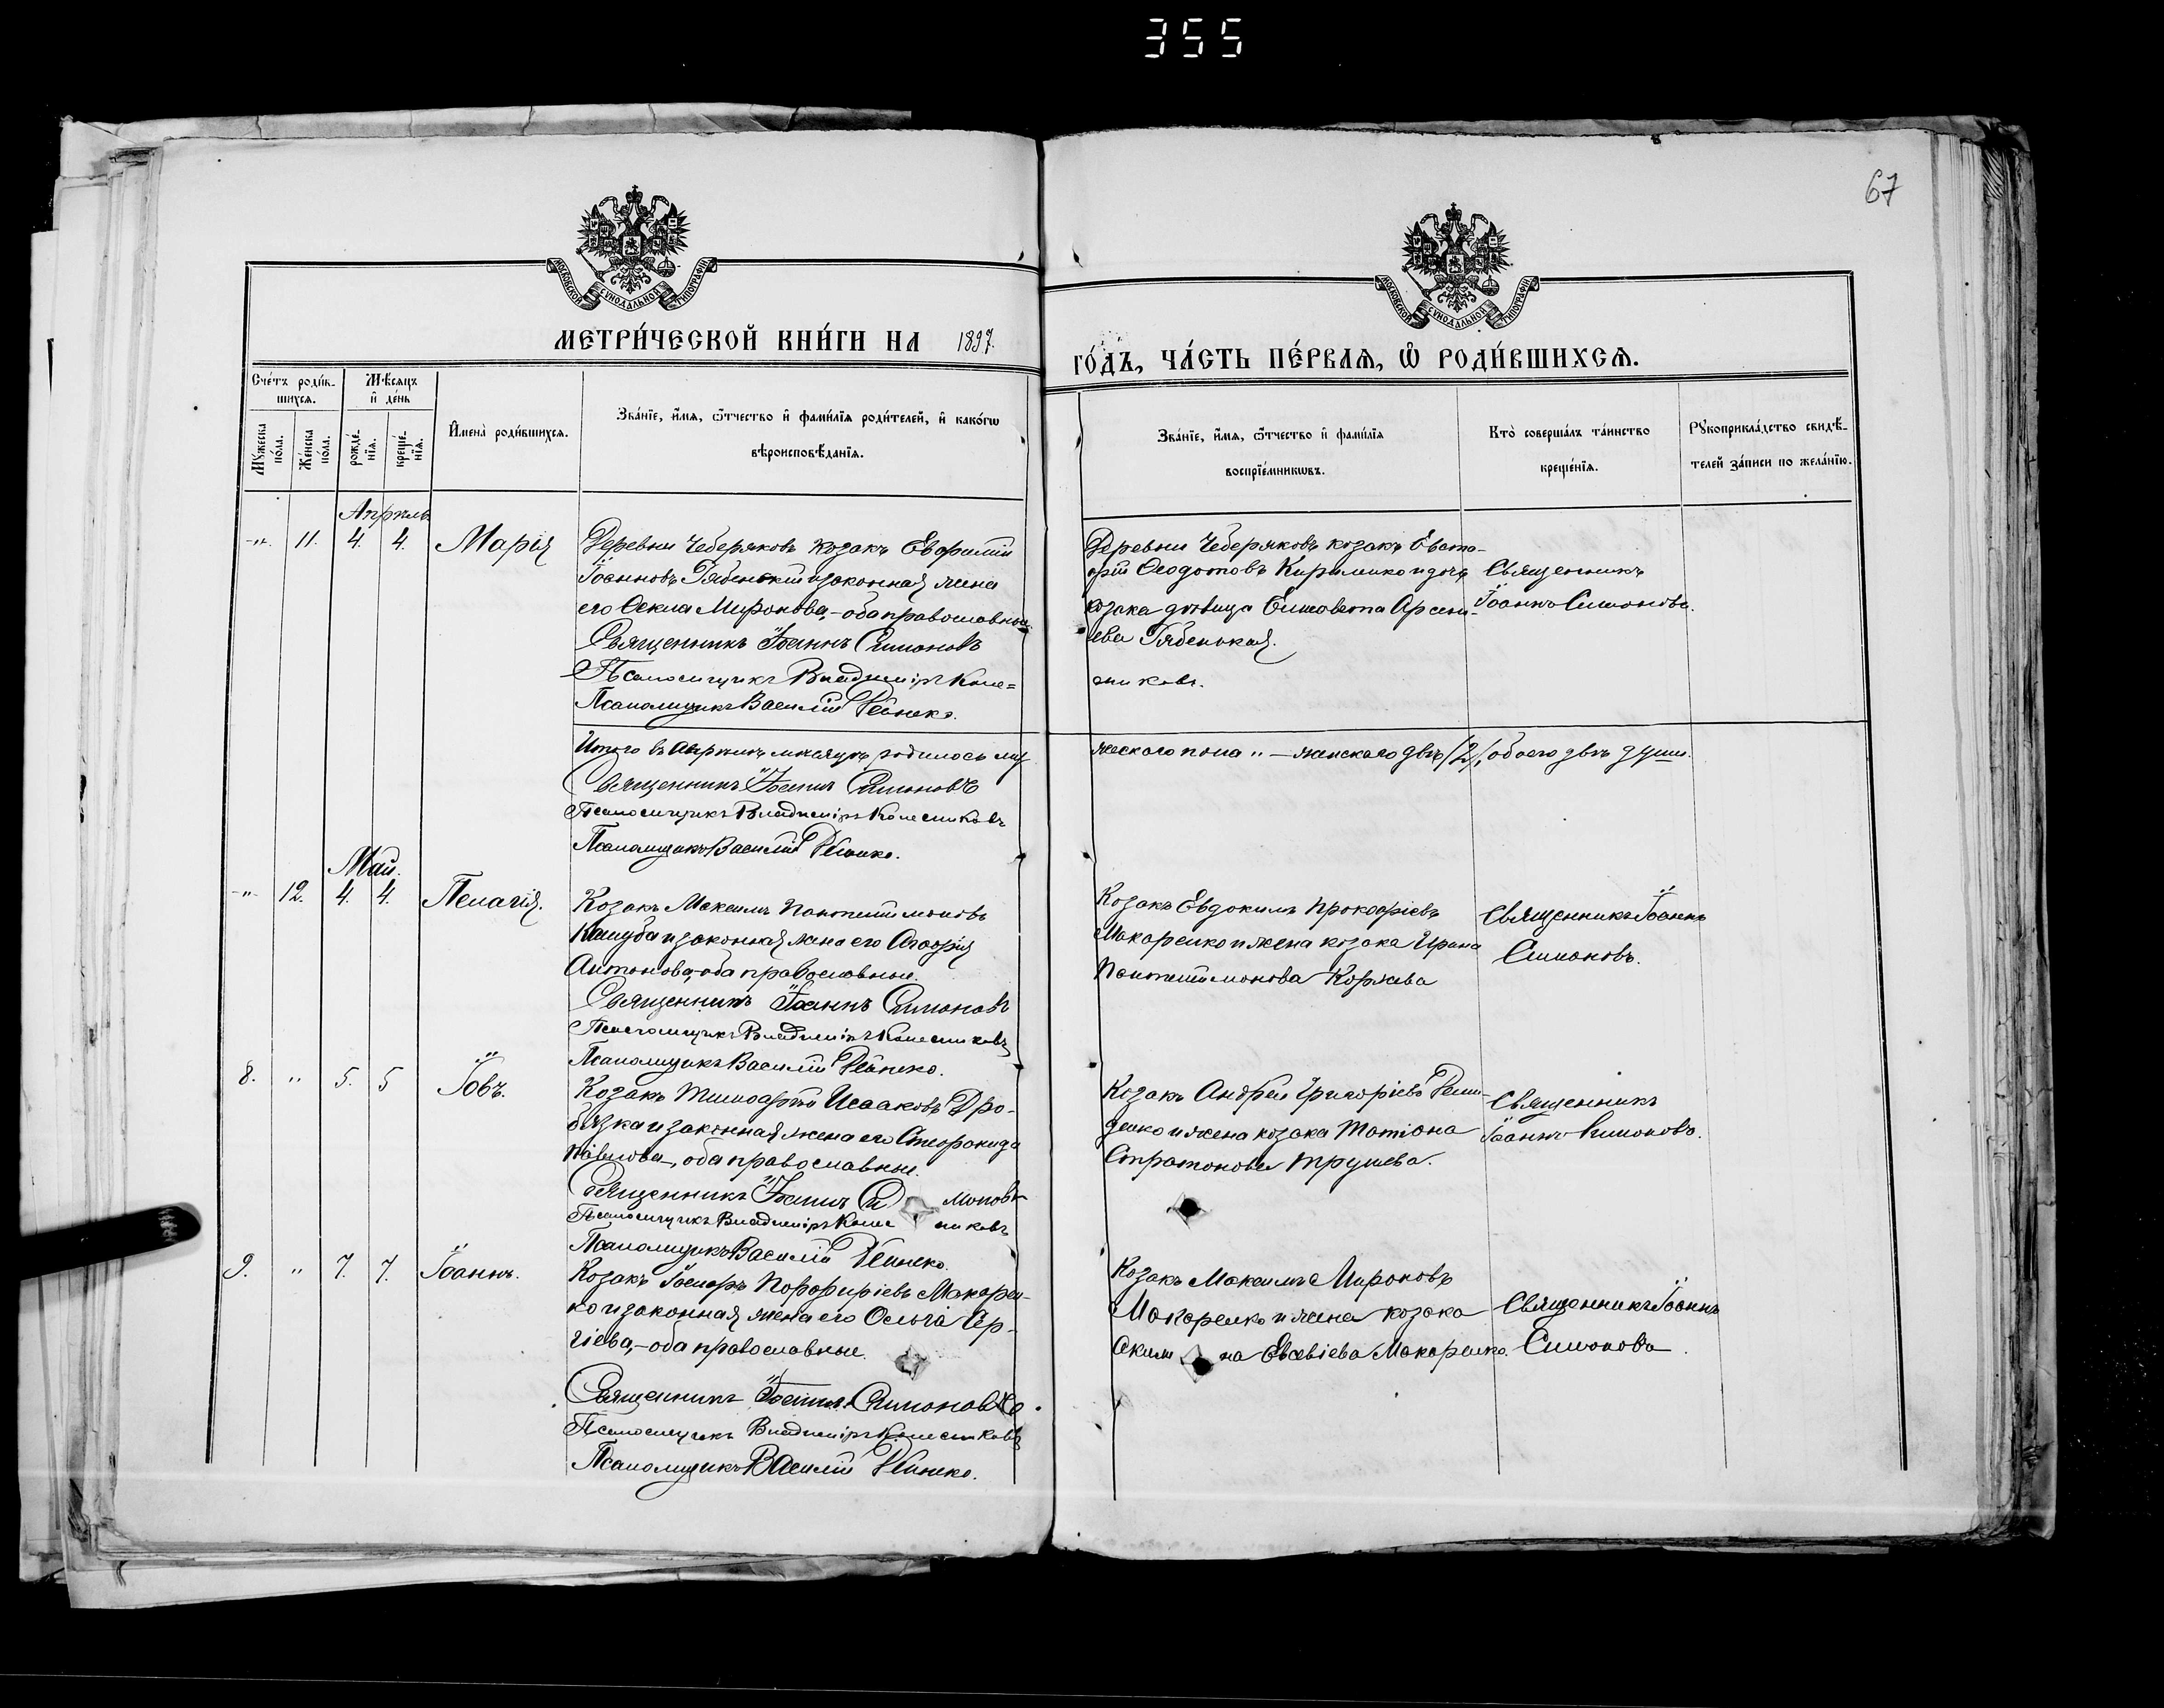 355
67
МОСКОВСКОЙ СУНОДАЛЬНОЙ ТИПОГРАФІИ
МОСКОВСКОЙ СУНОДАЛЬНОЙ ТИПОГРАФІИ
МЕТРИ́ЧЕСКОЙ КНИ́ГИ НА 1897.
ГО́ДЪ, ЧА́СТЬ ПЕ́РВАЯ, Ѡ РОДИ́ВШИХСЯ.
Сче́тъ роди́в-
шихся.
Мѣсяцъ
и де́нь
Му́жеска по́ла.
Же́нска по́ла.
рожде́-
нїя.
креще́-
нїя.
И҆мена̀ роди́вшихся.
Зва́нїе, и҆́мя, ѻ҆́тчество и҆ фами́лїя роди́телей, и҆ како́гѡ
вѣроисповѣ́данїя.
Зва́нїе, и҆́мя, ѻ҆́тчество и҆ фами́лїя
воспрїе́мникѡвъ.
Кто̀ соверша́лъ та́инство
креще́нїя.
Рꙋкоприкла́дство свидѣ́-
телей за́писи по жела́нїю.
Апрѣль
-"- 11. 4. 4. Марія
Деревни Чеберяковъ козакъ Евфимій
Іоанновъ Рябенькій и законная жена
его Ѳекла Миронова,-оба православные.
Священникъ Іоаннъ Симоновъ
Псаломщикъ Владиміръ Коле=
Псаломщикъ Василій Рейнеко.
Деревни Чеберяковъ козакъ
Ѳеодотовъ и дочь
козака дѣвица Елисавета Арсени-
ева Рябенькая.
сниковъ.
Священникъ
Іоаннъ Симоновъ.
Итого въ Апрѣлѣ мѣсяцѣ родилось му
жескаго пола " — женскаго двѣ /2/, обоего двѣ души.
Священникъ Іоаннъ Симоновъ
Псаломщикъ Владиміръ Колесниковъ
Псаломщикъ Василій Рейнеко.
Май.
-"- 12. 4. 4. Пелагія.
Козакъ Максимъ Пантелимоновъ
Кашуба и законная жена его Агафія
Антонова,-оба православные.
Священникъ Іоаннъ Симоновъ
Псаломщикъ Владиміръ Колесниковъ
Псаломщикъ Василій Рейнеко.
Козакъ Евдокимъ Прокофіевъ
Макаренко и жена козака Ирина
Пантелимонова Коржева
Священникъ Іоаннъ
Симоновъ.
8. " 5. 5 Іовъ.
Козакъ Тимофей Исааковъ Дро-
бязка и законная жена его Стефанида
Павлова,-оба православные.
Священникъ Іоаннъ Си моновъ
Псаломщикъ Владиміръ Коле сниковъ
Псаломщикъ Василій Рейнеко.
Козакъ Андрей Григоріевъ
и жена козака Татіана
Стратонова Трушева.
Священникъ
Іоаннъ Симоновъ.
9. " 7. 7. Іоаннъ.
Козакъ Іосифъ Порфиріевъ Макарен-
ко и законная жена его Ольга Сер-
гіева,-оба православные.
Священникъ Іоаннъ Симоновъ.
Псаломщикъ Владиміръ Колесниковъ
Псаломщикъ Василій Рейнеко.
Козакъ Максимъ Мироновъ
Макаренко и жена козака
Акили на Евсевіева Макаренко.
Священникъ Іоаннъ
Симоновъ.